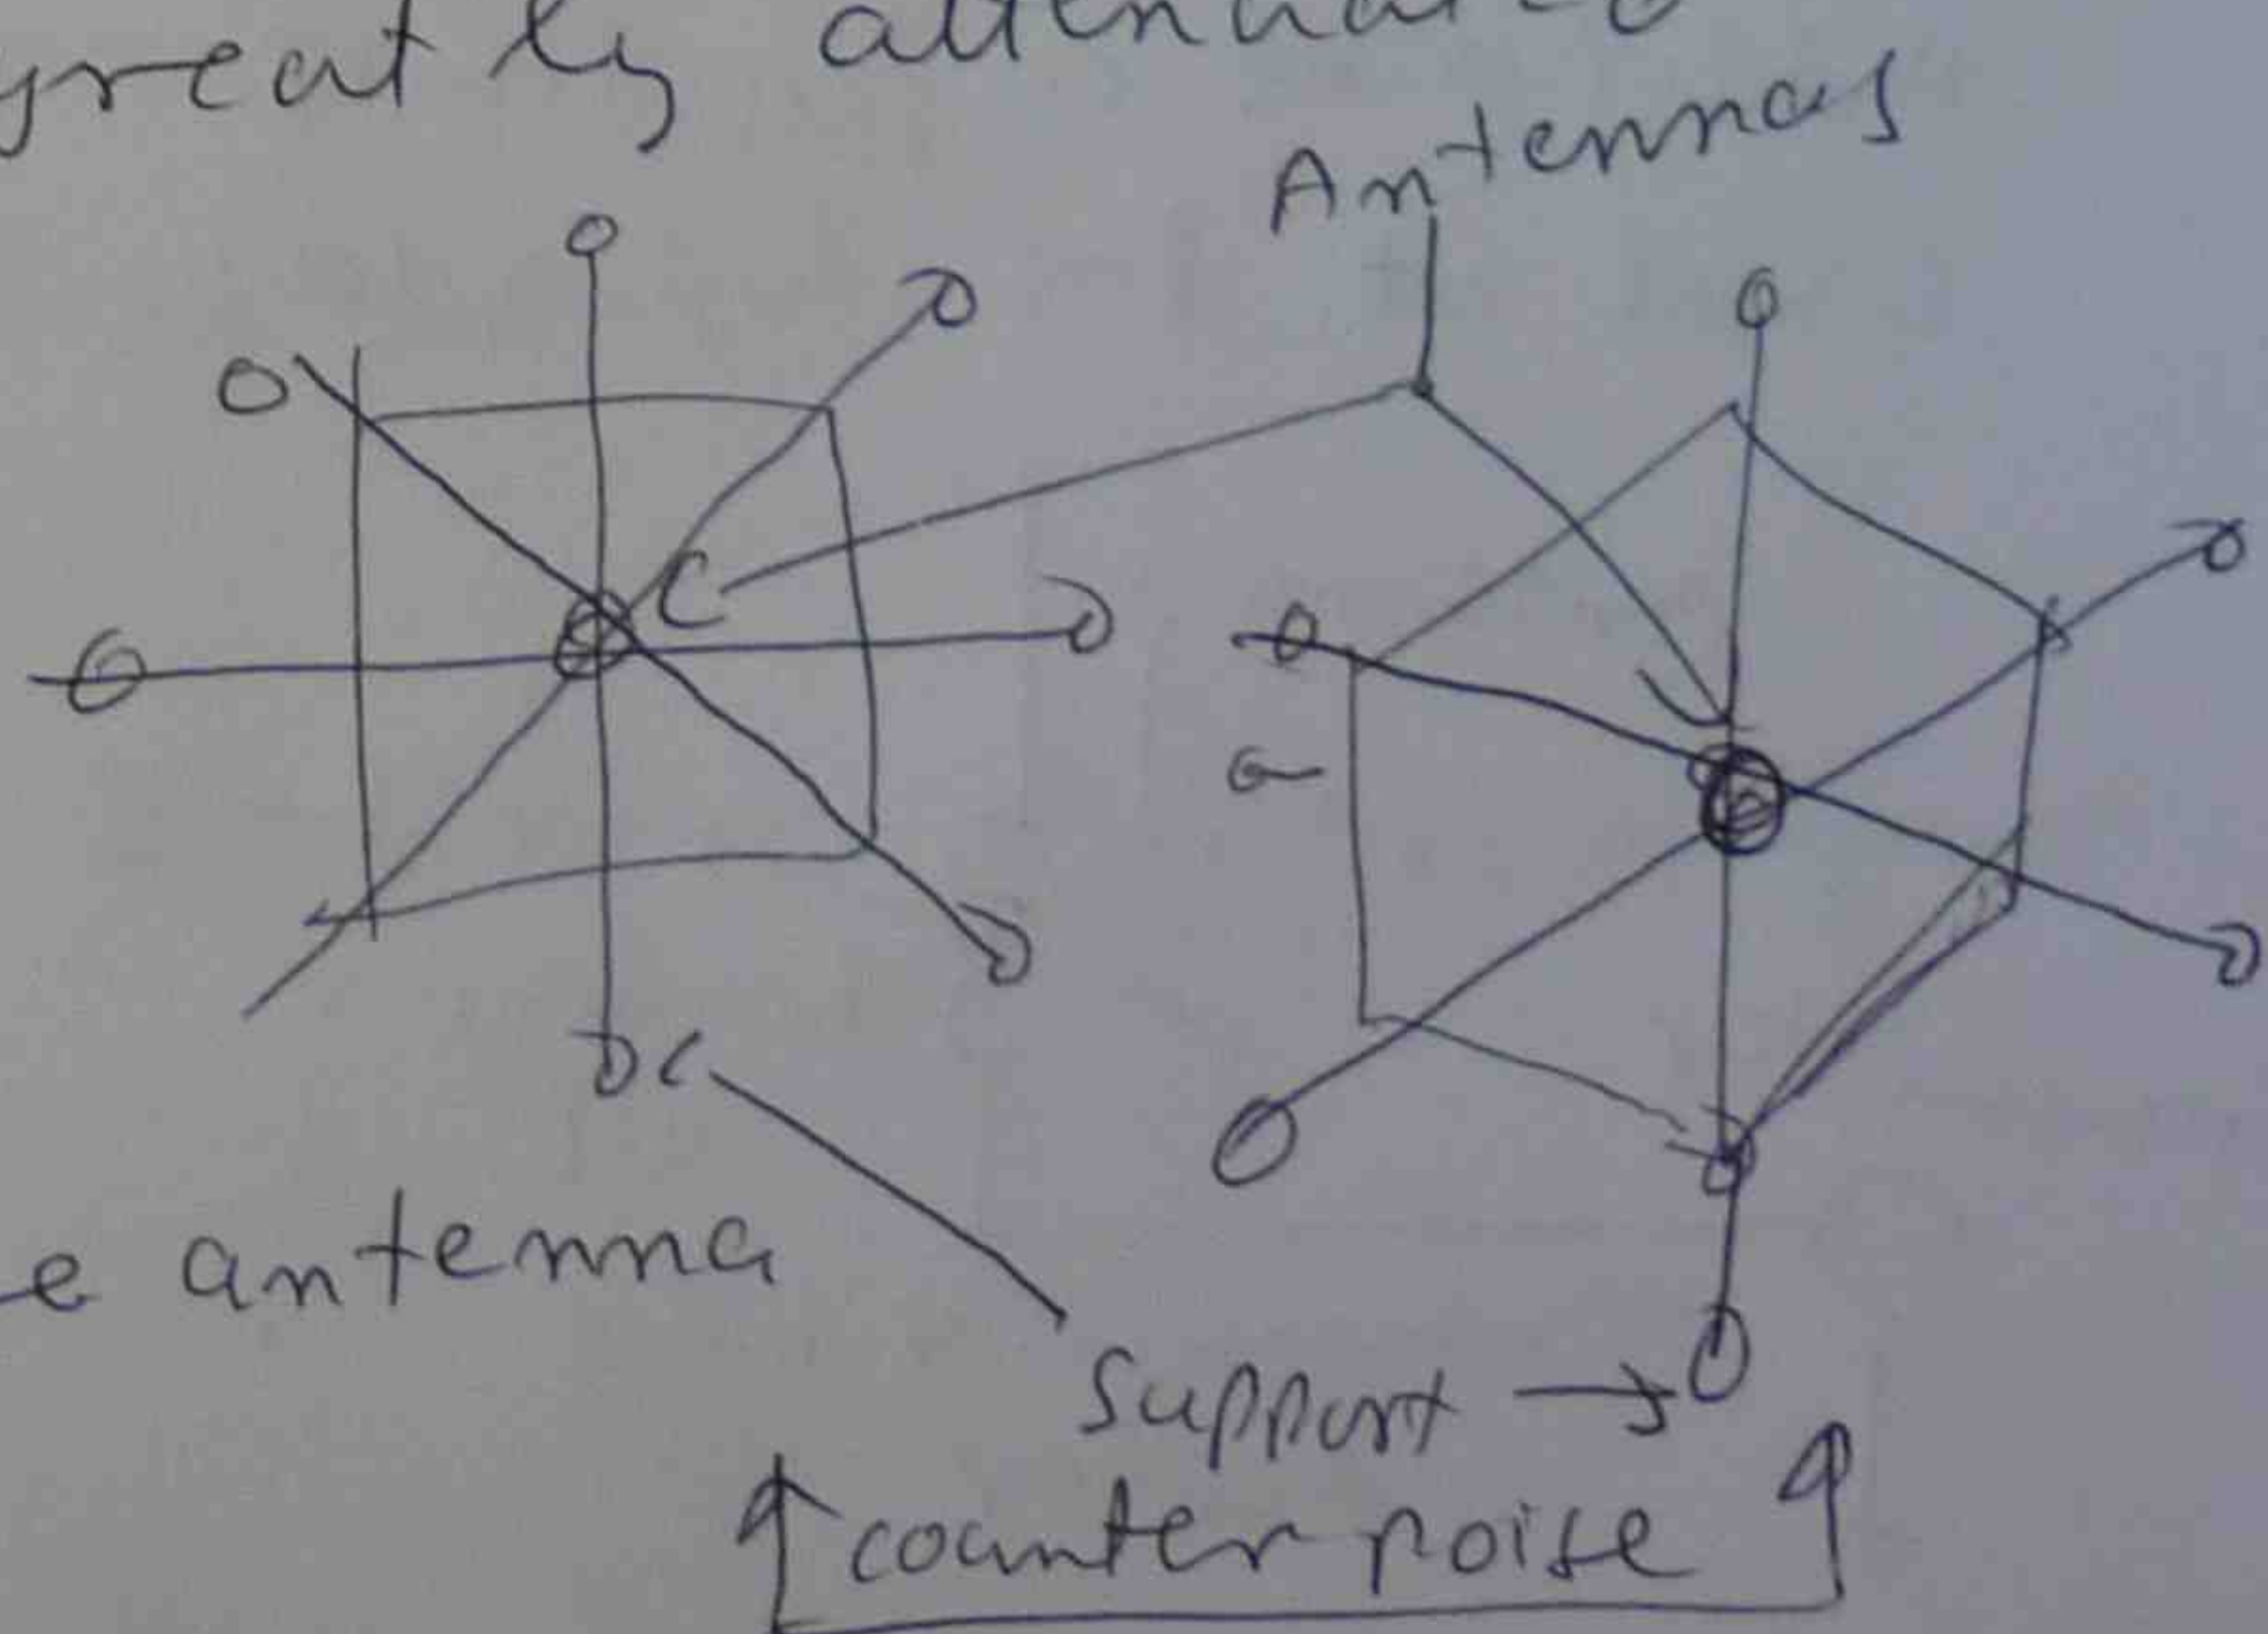 greatly attenuated
Antennas
e antenna
Support
counter poise